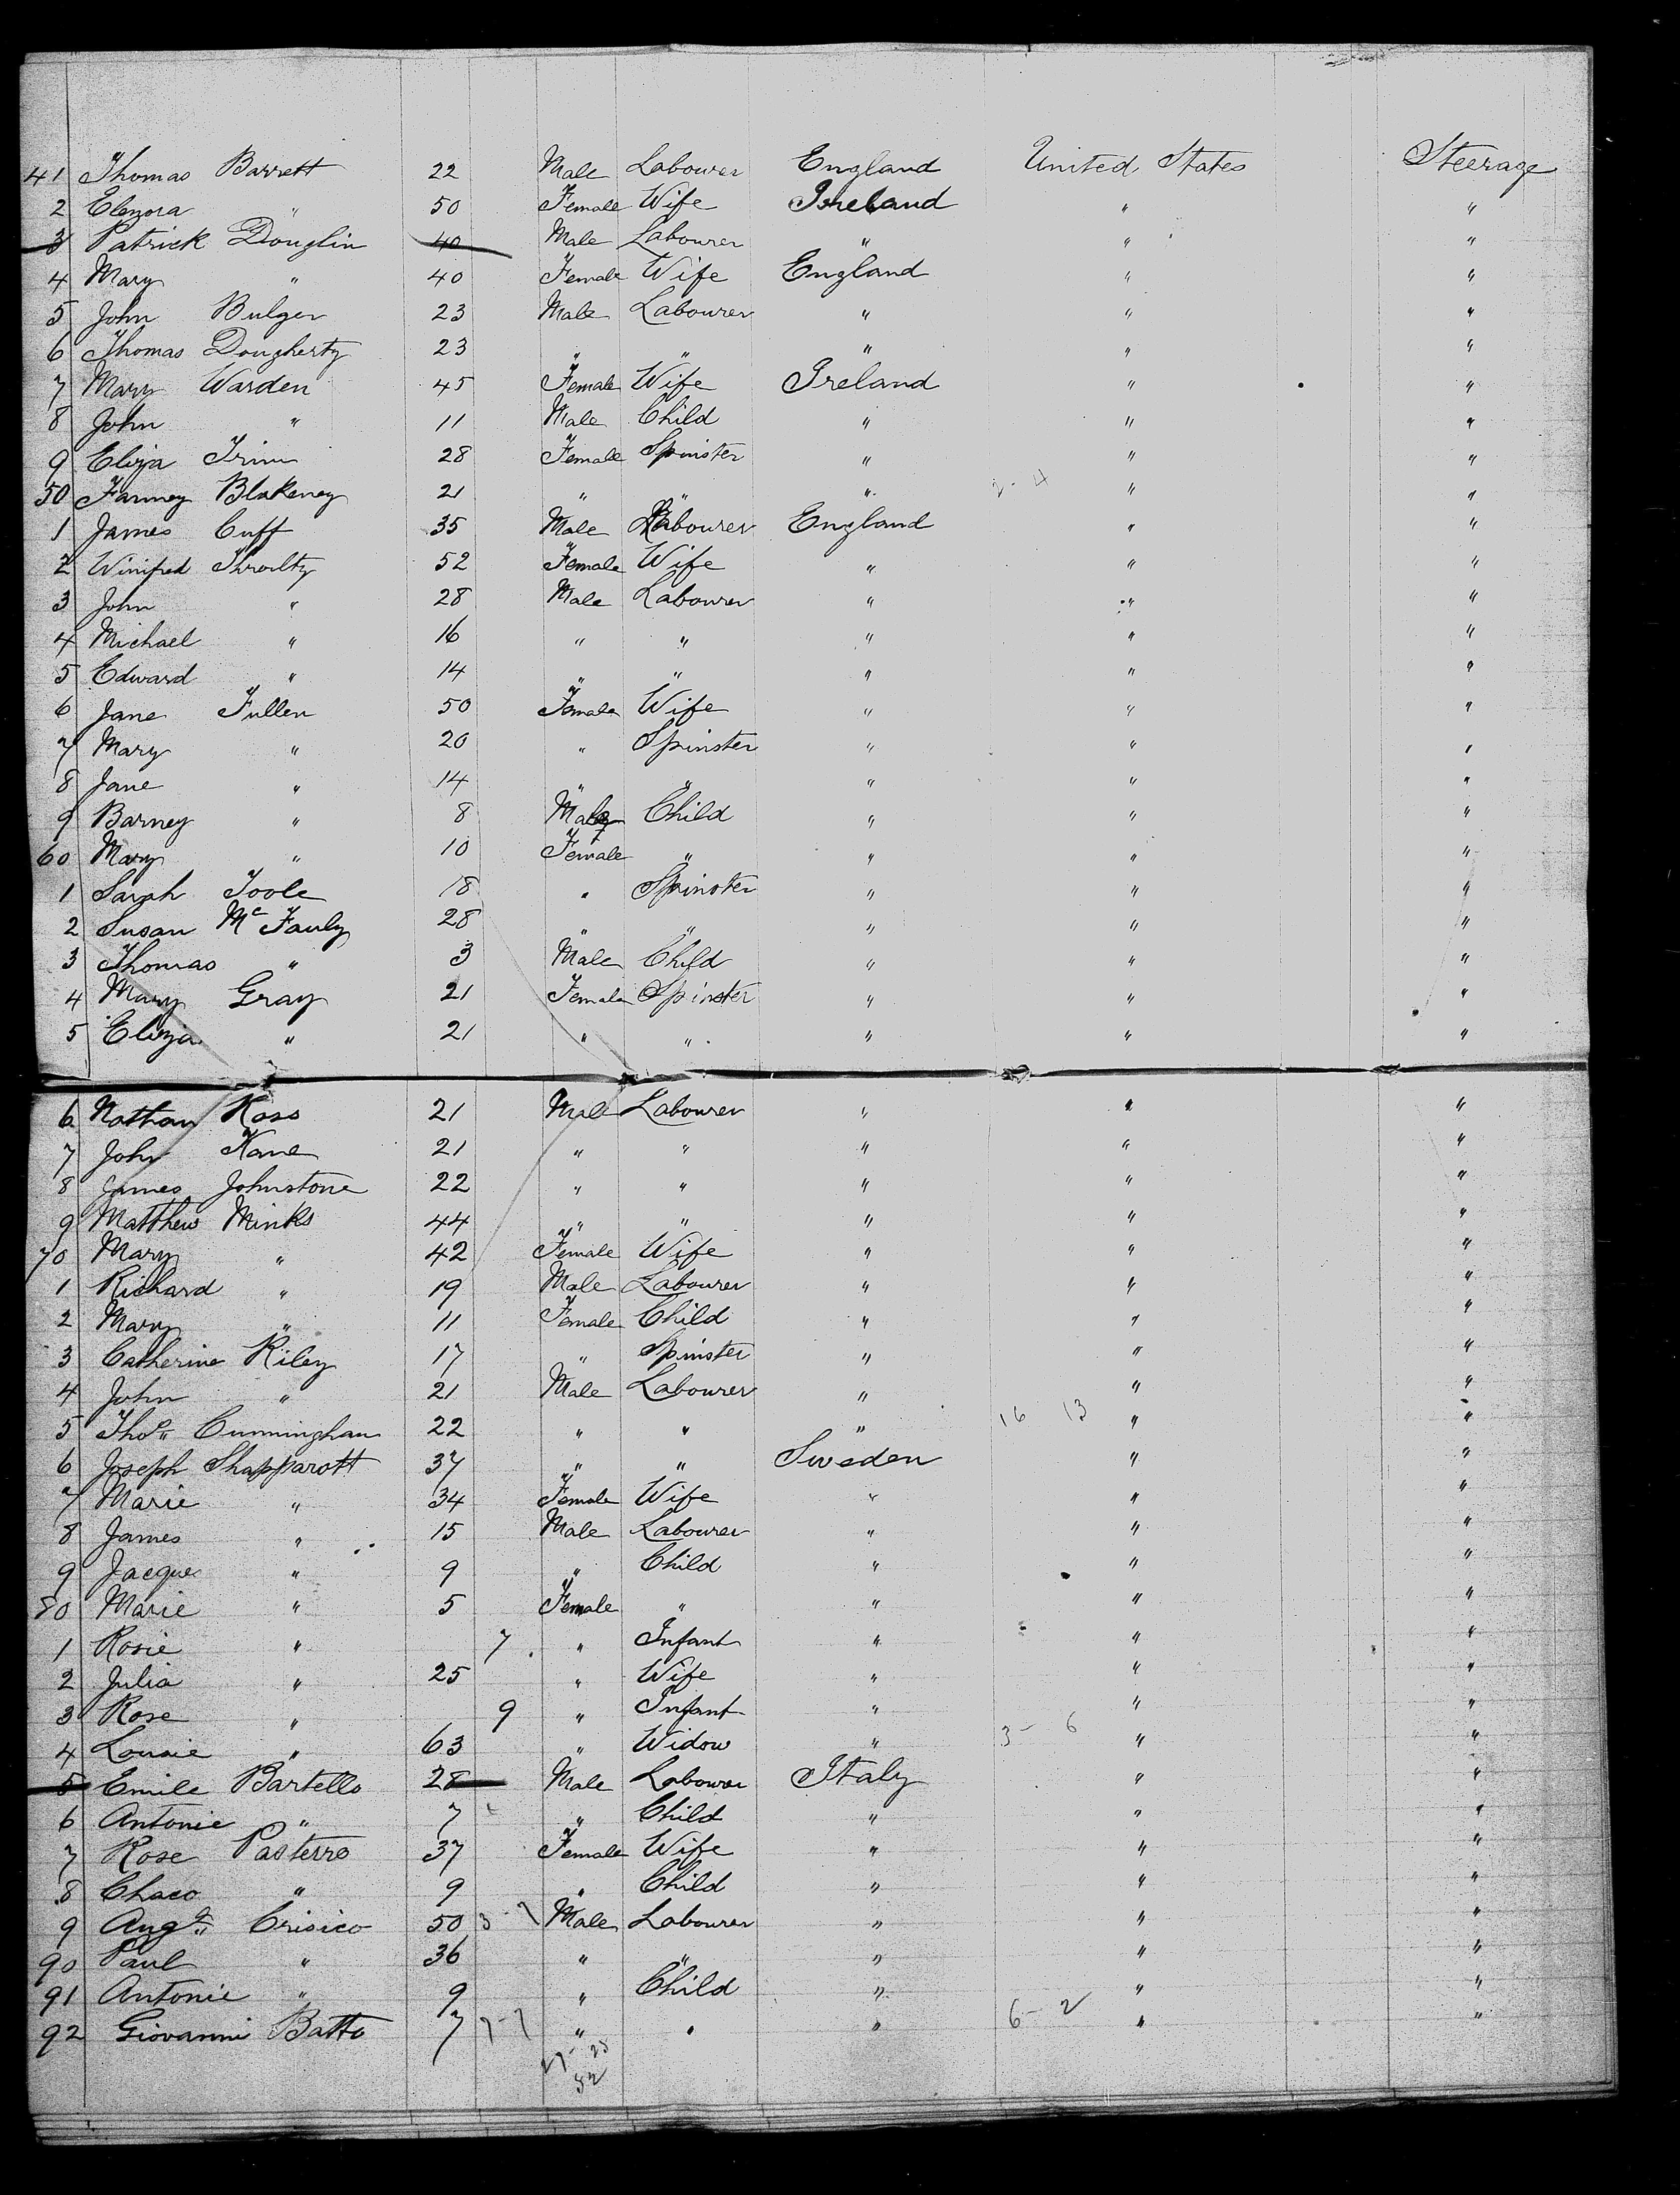 41 Thomas Barrett 22 Male Labourer England United States Steerage
2 Elenora " 50 Female Wife Ireland " "
3 Patrick Douglin 40 Male Labourer " " "
4 Mary " 40 Female Wife England " "
5 John Bulger 23 Male Labourer " " "
6 Thomas Dougherty 23 " " " " "
7 Mary Warden 45 Female Wife Ireland " "
8 John " 11 Male Child " " "
9 Eliza 28 Female Spinster " " "
50 Fanney Blakeney 21 " " " 2-4 " "
1 James Cuff 35 Male Labourer England " "
2 Winifred 52 Female Wife " " "
3 John " 28 Male Labourer " " "
4 Michael " 16 " " " " "
5 Edward " 14 " " " " "
6 Jane Fullen 50 Female Wife " " "
7 Mary " 20 " Spinster " " "
8 Jane " 14 " " " " "
9 Barney " 8 Male Child " " "
60 Mary " 10 Female " " " "
1 Sarah Toole 18 " Spinster " " "
2 Susan McFauly 28 " " " " "
3 Thomas " 3 Male Child " " "
4 Mary Gray 21 Female Spinster " " "
5 Eliza " 21 " " " " "
6 Nathan Ross 21 Male Labourer " " "
7 John Kane 21 " " " " "
8 James Johnstone 22 " " " " "
9 Matthew Minks 44 " " " " "
70 Mary " 42 Female Wife " " "
1 Richard " 19 Male Labourer " " "
2 Mary " 11 Female Child " " "
3 Catherine Riley 17 " Spinster " " "
4 John " 21 Male Labourer " " "
5 Thos. Cunningham 22 " " " 16 13 " "
6 Joseph Shapparott 37 " " Sweden " "
7 Marie " 34 Female Wife " " "
8 James " 15 Male Labourer " " "
9 Jacques " 9 " Child " " "
80 Marie " 5 Female " " " "
1 Rosie " 7 " Infant " " "
2 Julia " 25 " Wife " " "
3 Rose " 9 " Infant " " "
4 Lousie " 63 " Widow " 3-6 " "
5 Emile Bartello 28 Male Labourer Italy " "
6 Antonie " 7 " Child " " "
7 Rose Pasterro 37 Female Wife " " "
8 Chaco " 9 " Child " " "
9 Augt. Crisico 50 3-7 Male Labourer " " "
90 Paul " 36 " " " " "
91 Antonie " 9 " Child " " "
92 Giovanni Batto 7 7-7 " " " 6-2 " "
27-25
52